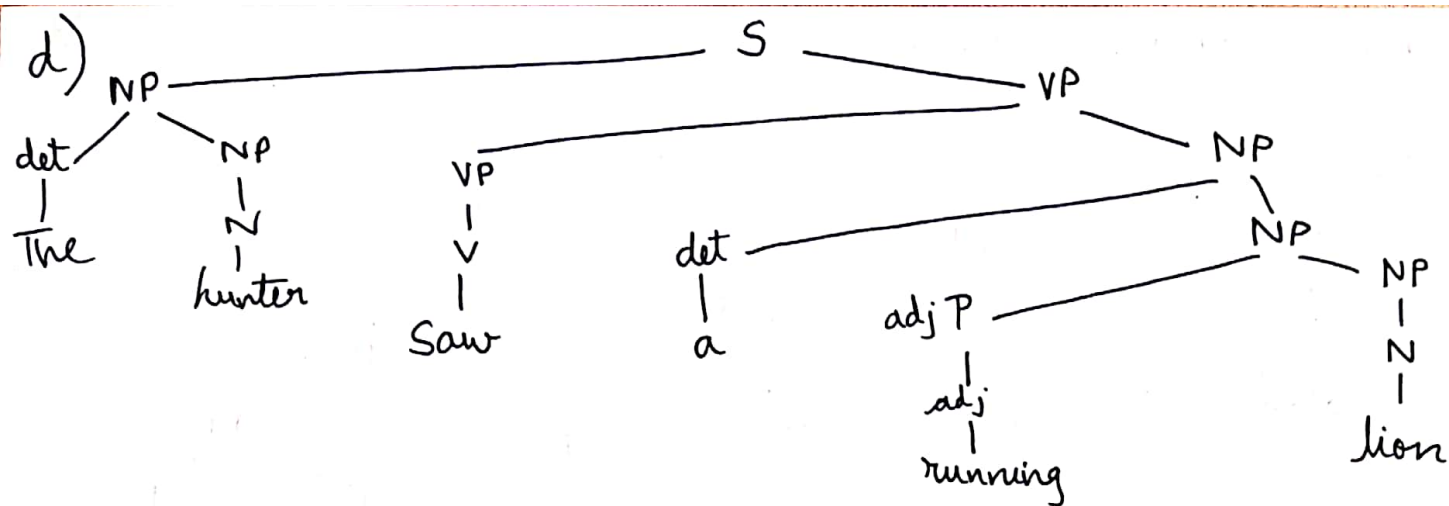 d)
S
NP VP
det NP VP NP
The N V det NP
hunter Saw a adj P NP
adj N
running lion